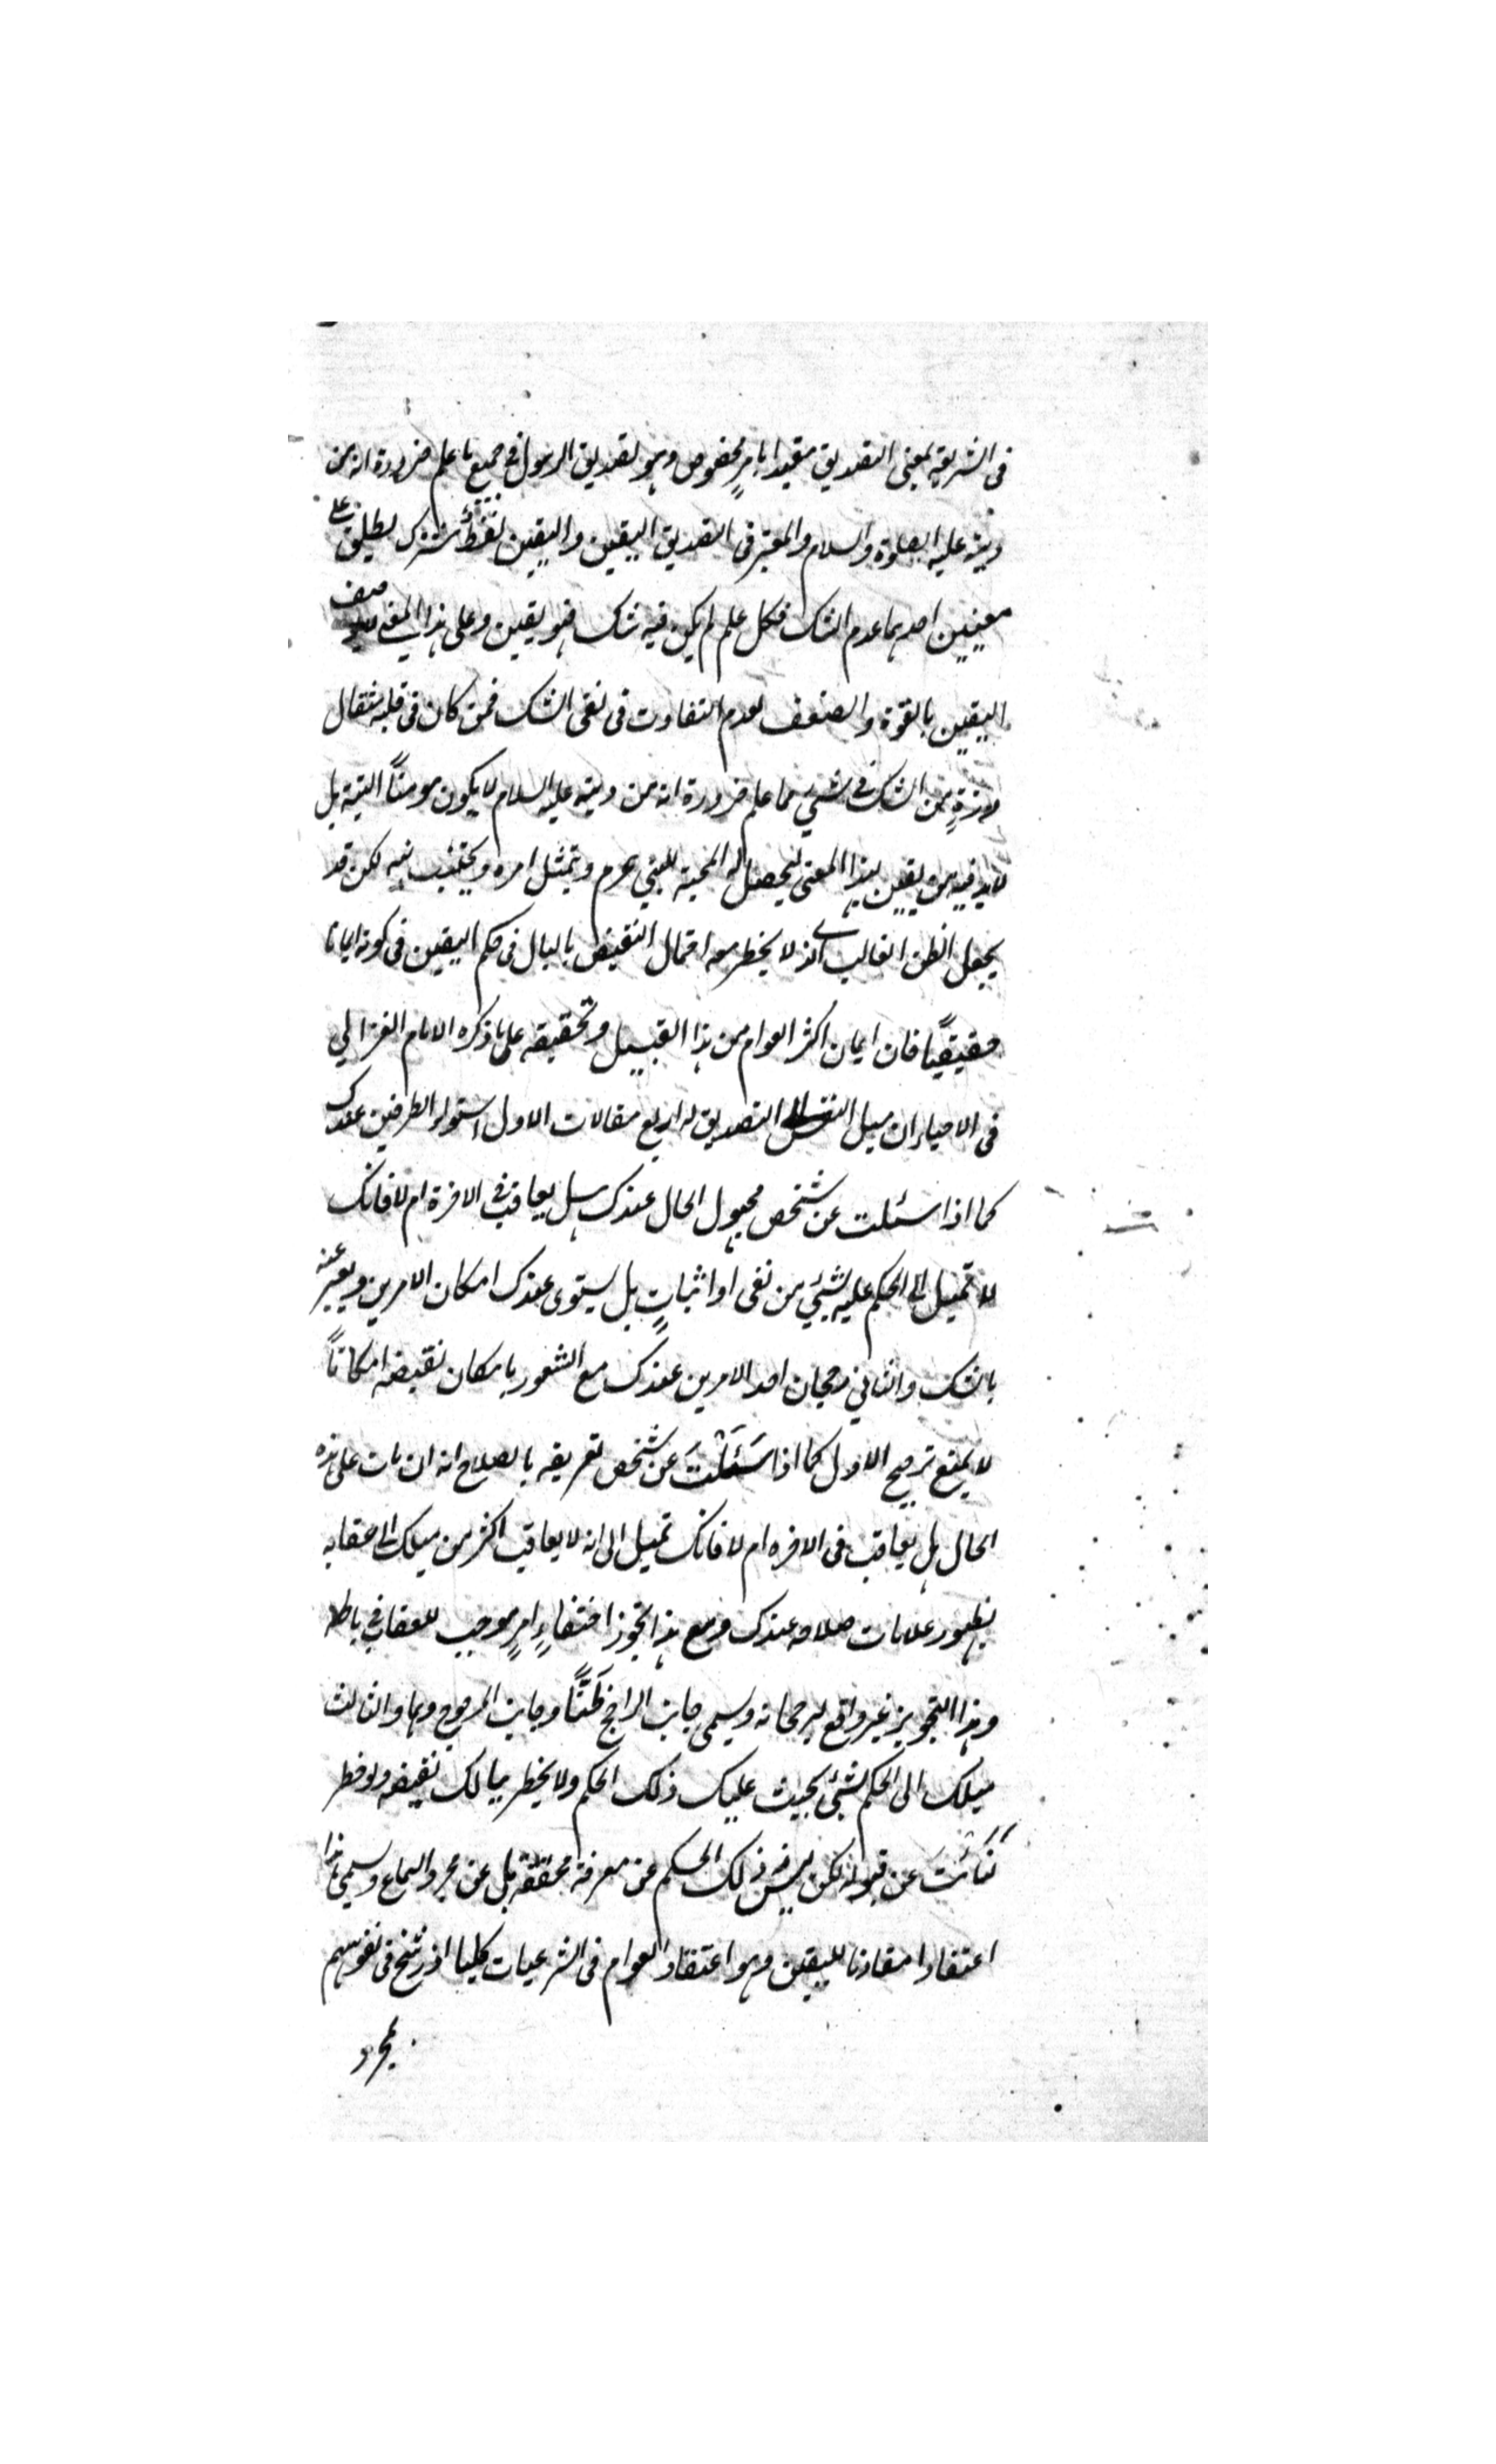 فى الشريعة بمعنى التصديق مقيدا بامرٍ مخصوص وهو تصديق الرسول فى جميع ما علم ضرورة انه من
دينه عليه الصلوة والسلام والمعتبر فى التصديق اليقين واليقين لفظٌ مشترك يطلق على
معنيين احدهما عدم الشك فكل علم لم يكن فيه شك فهو يقين وعلى هذا المعنى لا يوصف
اليقين بالقوة والضعف لعدم التفاوت فى نفى الشك فمن كان فى قلبه مثقال
ذرةٍ من الشك فى شيئ مما علم ضرورة انه من دينه عليه السلام لا يكون مومناً البتة بل
لابد فيه من يقين بهذا المعنى ليحصل له المحبة للنبي عم ويمتثل امره ويجتنب نهيه لكن قد
يجعل الظن الغالب الذى لا يخطر معه احتمال النقيض بالبال فى حكم اليقين فى كونه ايمانا
حقيقيًا فان ايمان اكثر العوام من هذا القبيل وتحقيقه على ما ذكره الامام الغزالي
فى الاحياء ان ميل النفس الى التصديق له اربع مقالات الاول استواء الطرفين عندك
كما اذا سئلت عن شخص مجهول الحال عندك هل يعاقب فى الاخرة ام لا فانك
لا تميل الى الحكم عليه بشيئ من نفى او اثباتٍ بل يستوى عندك امكان الامرين ويعبر عنه
بالشك والثاني رجحان احد الامرين عندك مع الشعور بامكان نقيضه امكاناً
لا يمنع ترجيح الاول كما اذا سَئَلْتَ عن شخص تعريفه بالصلاح انه ان مات على هذه
الحال هل يعاقب فى الاخره ام لا فانك تميل الى انه لا يعاقب اكثر من ميلك الى عقابه
بظهور علامات صلاحه عندك ومع هذا تجوز اختفاءِ امرٍ موجب للعقاب فى باطنه
وهذا التجويز غير واقع لرجحانه ويسمى جانب الراجح ظَنًّا وجانب المرجوح وهما والثالث
ميلك الى الحكم بشيئ بحيث عليك ذلك الحكم ولا يخطر ببالك نقيضه ولو خطر
عن قبوله لكن ليس ذلك الحكم عن معرفة محققة بل عن مجرد السماع ويسمى هذا
اعتقادا مقارنا لليقين وهو اعتقاد العوام فى الشرعيات كلها اذ رسخ فى نفوسهم
بمجرد